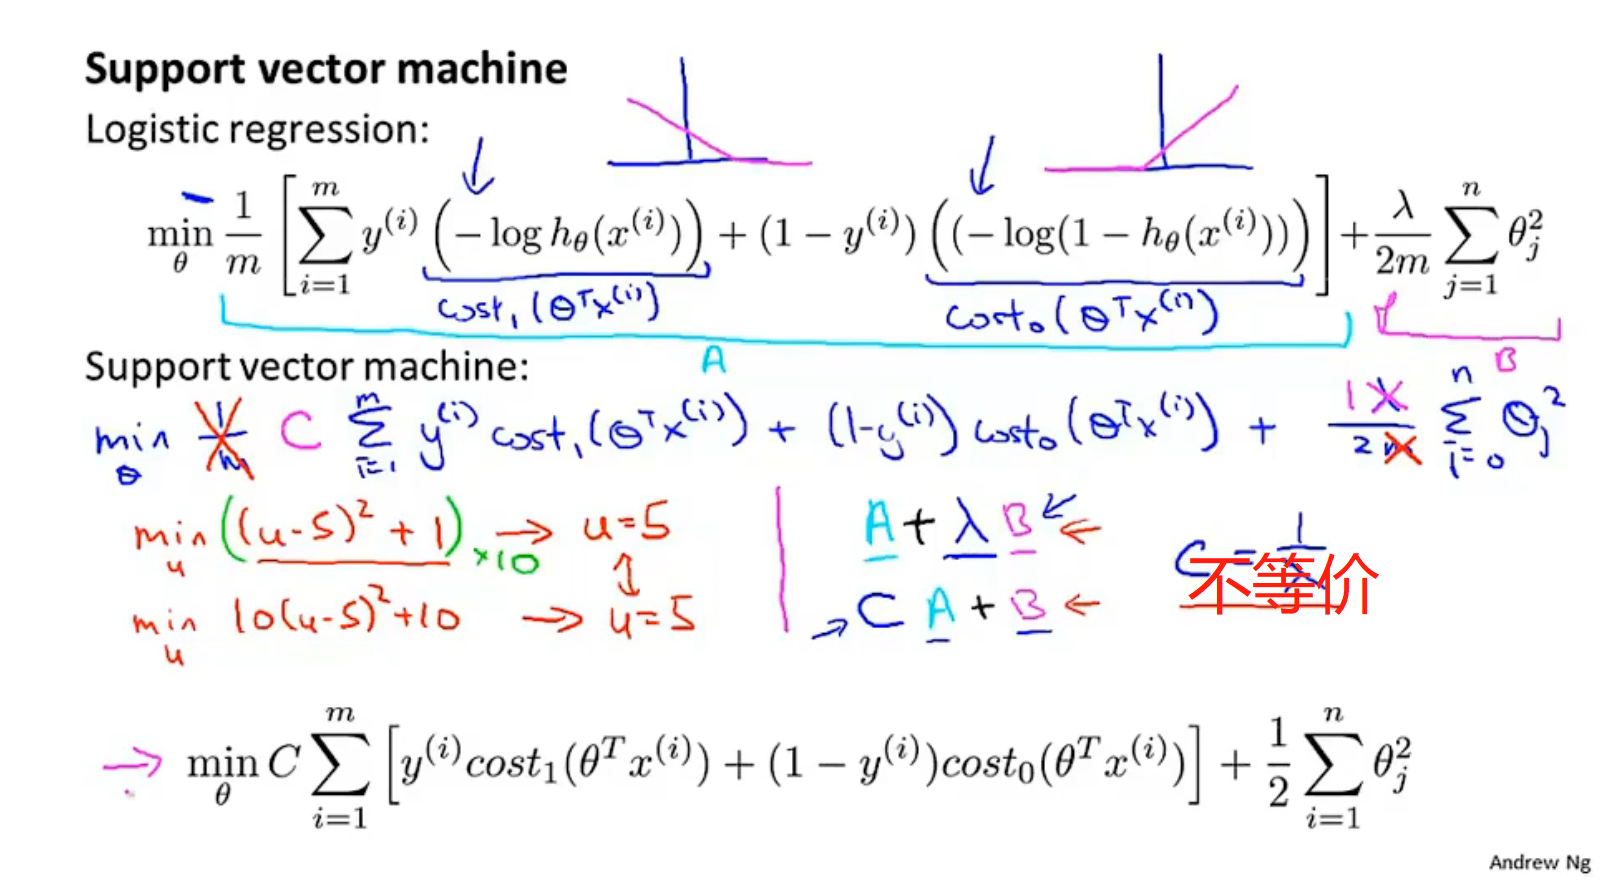 Support vector machine
Logistic regression:
min_θ 1/m [ ∑_{i=1}^{m} y^{(i)} (−log h_θ(x^{(i)})) + (1 − y^{(i)}) ((−log(1 − h_θ(x^{(i)}))) ] + λ/2m ∑_{j=1}^{n} θ_j^2
cost₁(θᵀx^{(i)}) cost₀(θᵀx^{(i)})
A B
Support vector machine:
min_θ 1/m C ∑_{i=1}^{m} y^{(i)} cost₁(θᵀx^{(i)}) + (1−y^{(i)}) cost₀(θᵀx^{(i)}) + 1 λ/2m ∑_{i=0}^{n} θ_j^2
min_u ((u-5)² + 1) ×10 → u=5
A + λ B ←
C = 1/λ
不等价
min_u 10(u-5)²+10 → u=5
→ C A + B ←
→ min_θ C ∑_{i=1}^{m} [y^{(i)}cost₁(θᵀx^{(i)}) + (1 − y^{(i)})cost₀(θᵀx^{(i)})] + 1/2 ∑_{i=1}^{n} θ_j^2
Andrew Ng